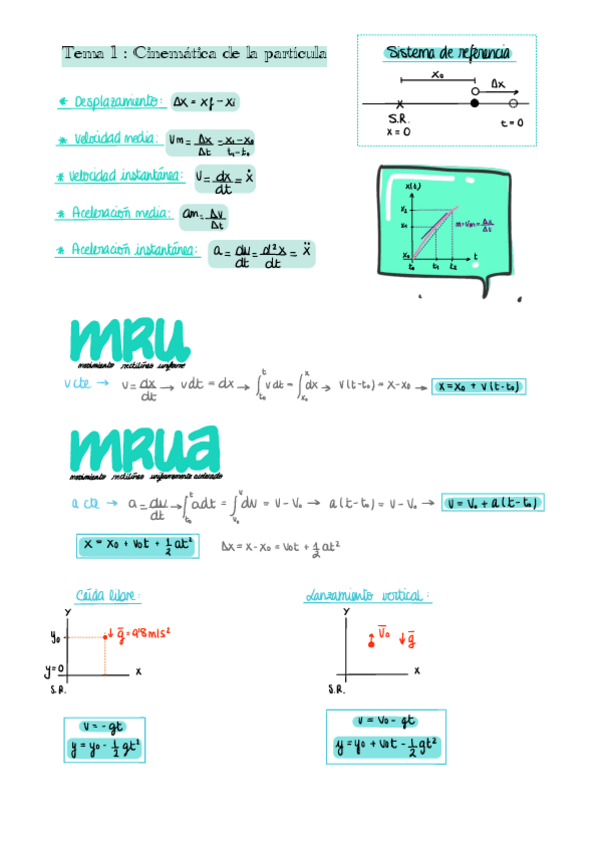 Tema 1 : Cinemática de la partícula
Sistema de referencia
x0
Δx
S.R.
x = 0
t = 0
* Desplazamiento: Δx = xf - xi
* Velocidad media: Vm = Δx/Δt = x1 - x0/t1 - t0
* Velocidad instantánea: V = dx/dt = ẋ
* Aceleración media: am = Δv/Δt
* Aceleración instantánea: a = dv/dt = d²x/dt = ẍ
x(t)
x2
x1
x0
m = Vm = Δx/Δt
t0 t1 t2 t
MRU
movimiento rectilíneo uniforme
v cte → v = dx/dt → v dt = dx → ∫t0 t v dt = ∫x0 x dx → v(t-t0) = x-x0 → x = x0 + v(t-t0)
MRUA
movimiento rectilíneo uniformemente acelerado
a cte → a = dv/dt → ∫t0 t a dt = ∫v0 v dv = v - v0 → a(t-t0) = v - v0 → v = v0 + a(t-t0)
x = x0 + v0t + 1/2 at² Δx = x - x0 = v0t + 1/2 at²
Caída libre:
y
y0
↓ g = 9'8 m/s²
y=0
x
S.R.
v = -gt
y = y0 - 1/2 gt²
Lanzamiento vertical:
y
v0
g
x
S.R.
v = v0 - gt
y = y0 + v0t - 1/2 gt²